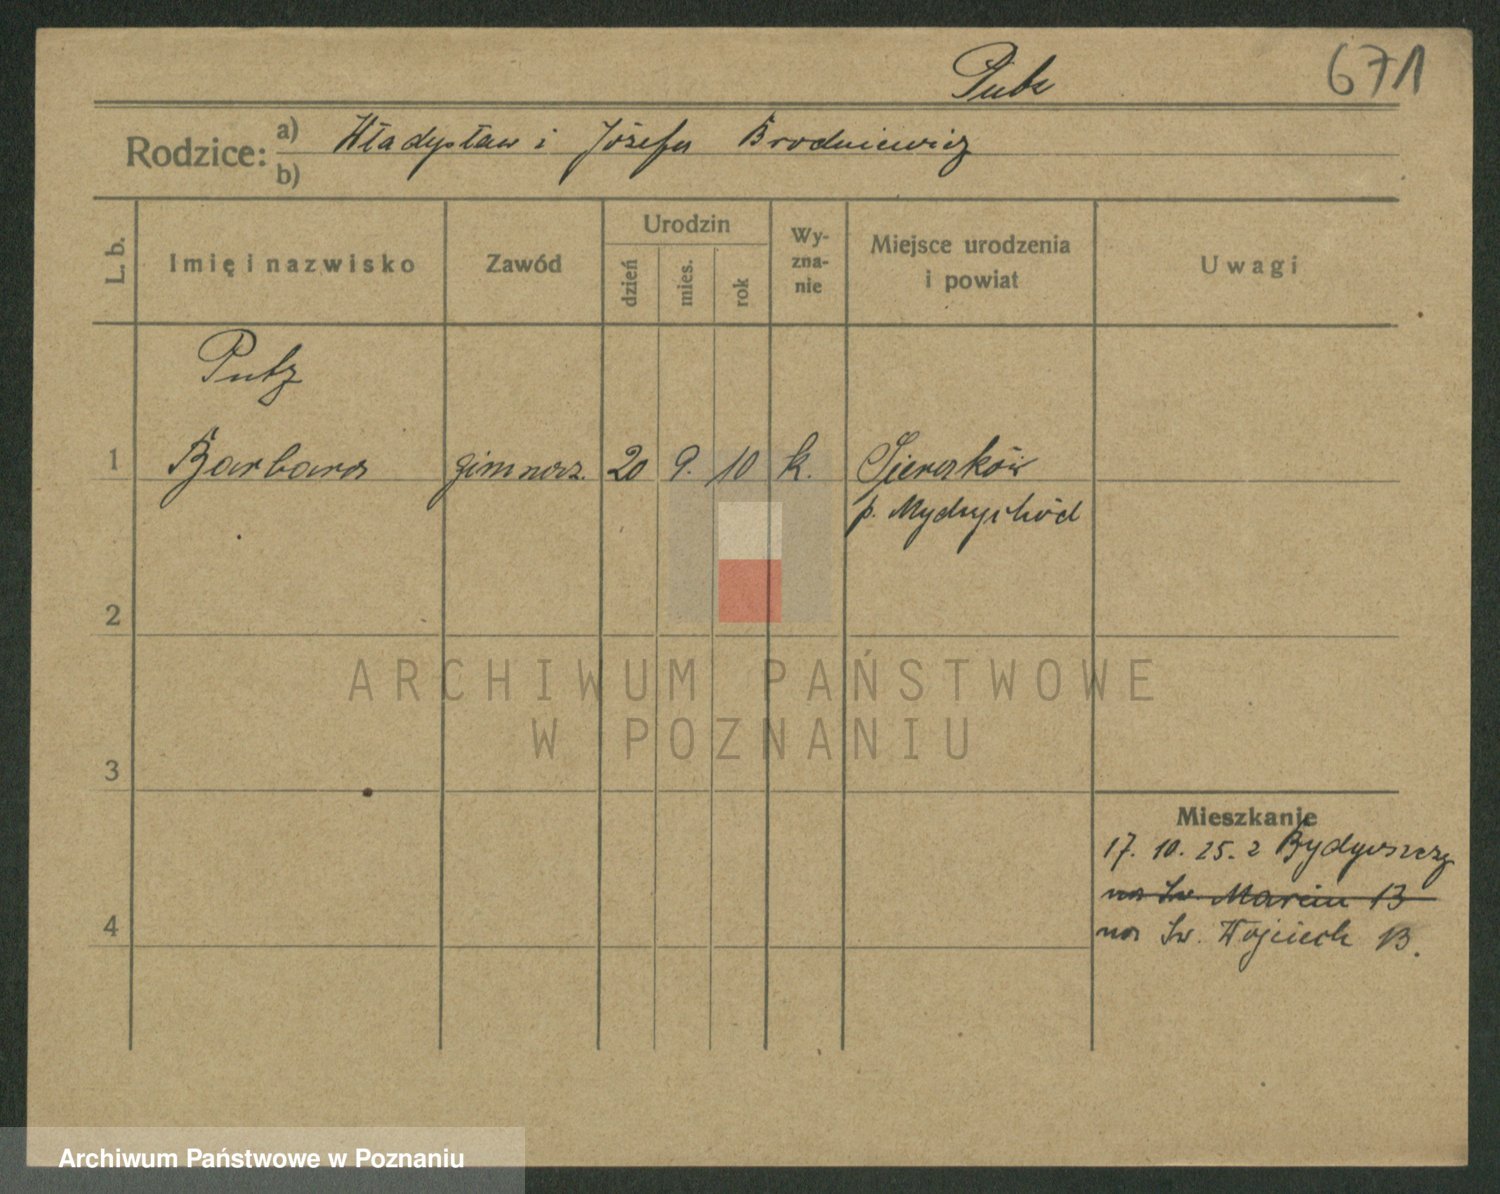 Putz
671
Rodzice: a) Władysław i Józefa Brodniewicz
b)
L. b.
Imię i nazwisko
Zawód
Urodzin
dzień
mies.
rok
Wy-
zna-
nie
Miejsce urodzenia
i powiat
Uwagi
Putz
1 Barbara gimnaz. 20 9. 10 k. Sieraków
p. Mydzychód
2
ARCHIWUM PAŃSTWOWE
W POZNANIU
3
Mieszkanie
17. 10. 25. z Bydgoszczy
na Św. Marcin 13
4
na Św. Wojciech 13.
Archiwum Państwowe w Poznaniu